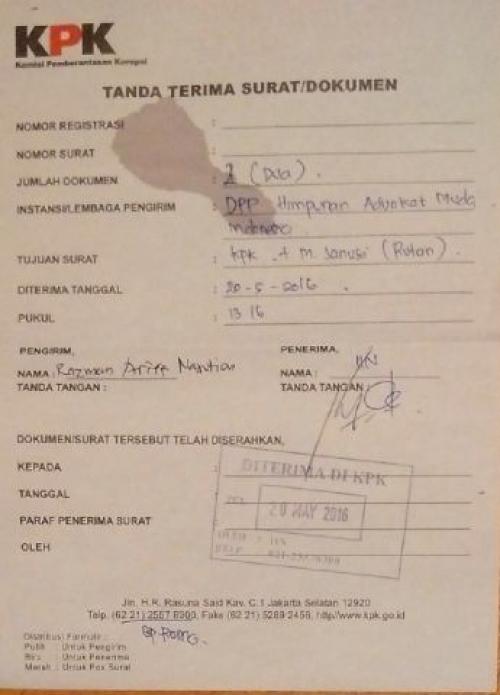 KPK
Komisi Pemberantasan Korupsi
TANDA TERIMA SURAT/DOKUMEN
NOMOR REGISTRASI :
NOMOR SURAT :
JUMLAH DOKUMEN : 2 (Dua).
INSTANSI/LEMBAGA PENGIRIM : DPP Himpunan Advokat Muda
Indonesia
TUJUAN SURAT : KPK + M. Sanusi (Rutan).
DITERIMA TANGGAL : 20-5-2016.
PUKUL : 13 16
PENGIRIM, PENERIMA,
NAMA : Razman Arif Nasution NAMA :
TANDA TANGAN : TANDA TANGAN :
DOKUMEN/SURAT TERSEBUT TELAH DISERAHKAN,
KEPADA :
DITERIMA DI KPK
TANGGAL
20 MAY 2016
PARAF PENERIMA SURAT
OLEH
Jln. H.R. Rasuna Said Kav. C.1 Jakarta Selatan 12920
Telp. (62 21) 2557 8300, Faks (62 21) 5289 2456, http//www.kpk.go.id
Distribusi Formulir :
Putih : Untuk Pengirim
Biru : Untuk Penerima
Merah : Untuk Pos Surat